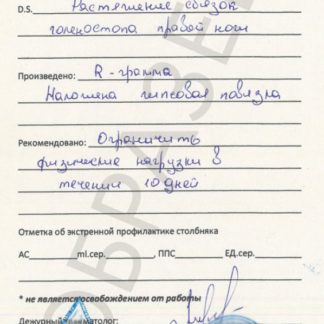 D.S. Растяжение связок
голеностопа правой ноги
Произведено: R-грамма
Наложена гипсовая повязка
Рекомендовано: Ограничить
физические нагрузки в
течении 10 дней
Отметка об экстренной профилактике столбняка
АС______ml.сер.________, ППС________ЕД.сер.______
* не является освобождением от работы
Дежурный травматолог:
ОБРАЗЕЦ